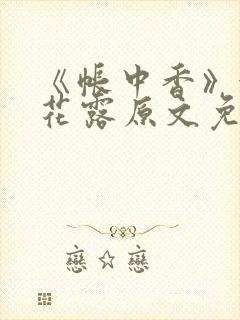 《帐中香》
花露原文免
戀☆戀